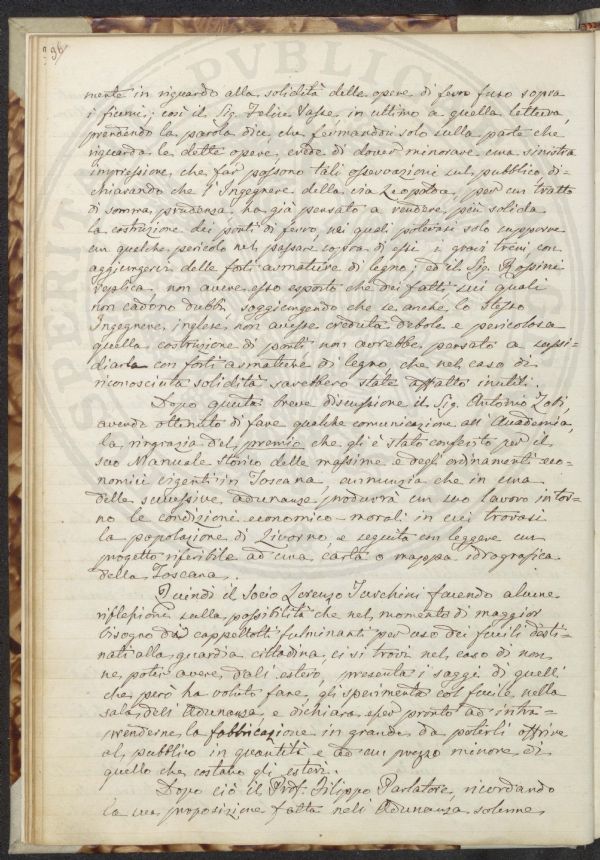 396
mente in riguardo alla solidità delle opere di ferro fuso sopra
i fiumi; così il Sig. Felice Vasse, in ultimo a quella lettura,
prendendo la parola dice, che fermandosi solo sulla parte che
riguarda le dette opere, crede di dover minorare una sinistra
impressione, che far possono tali osservazioni sul pubblico di-
chiarando che l'Ingegnere della via Leopolda, per un tratto
di somma prudenza, ha già pensato a rendere più solida
la costruzione dei ponti di ferro, nei quali potevasi solo supporre
un qualche pericolo nel passare sopra di essi i gravi treni, con
aggiungervi delle forti armature di legno; ed il Sig. Rossini
replica non avere esso esposto che dei fatti sui quali
non cadono dubbi, soggiungendo che se anche lo stesso
Ingegnere inglese, non avesse creduta debole e pericolosa
quella costruzione di ponti non avrebbe pensato a sussi=
diarla con forti armature di legno, che nel caso di
riconosciuta solidità sarebbero state affatto inutili.
Dopo questa breve discussione il Sig. Antonio Zobi,
avendo ottenuto di fare qualche comunicazione all'Accademia,
la ringrazia del premio che gli è stato conferito per il
suo Manuale storico delle massime e degli ordinamenti eco=
nomici vigenti in Toscana, annunzia che in una
delle successive adunanze produrrà un suo lavoro intor=
no le condizioni economico-morali in cui trovasi
la popolazione di Livorno, e seguita con leggere un
progetto riferibile ad una carta o mappa idrografica
della Toscana.
Quindi il Socio Lorenzo Turchini facendo alcune
riflessioni sulla possibilità che nel momento di maggior
bisogno di cappellotti fulminanti per uso dei fucili desti=
nati alla guardia cittadina, ci si trovi nel caso di non
ne poter avere dall'estero, presenta i saggi di quelli
che però ha voluto fare, gli sperimenta col fucile nella
sala dell'Adunanza, e dichiara esser pronto ad intra=
prenderne la fabbricazione in grande da poterli offrire
al pubblico in quantità e ad un prezzo minore di
quello che costano gli esteri.
Dopo ciò il Prof. Filippo Parlatore, ricordando
la sua proposizione fatta nell'Adunanza solenne